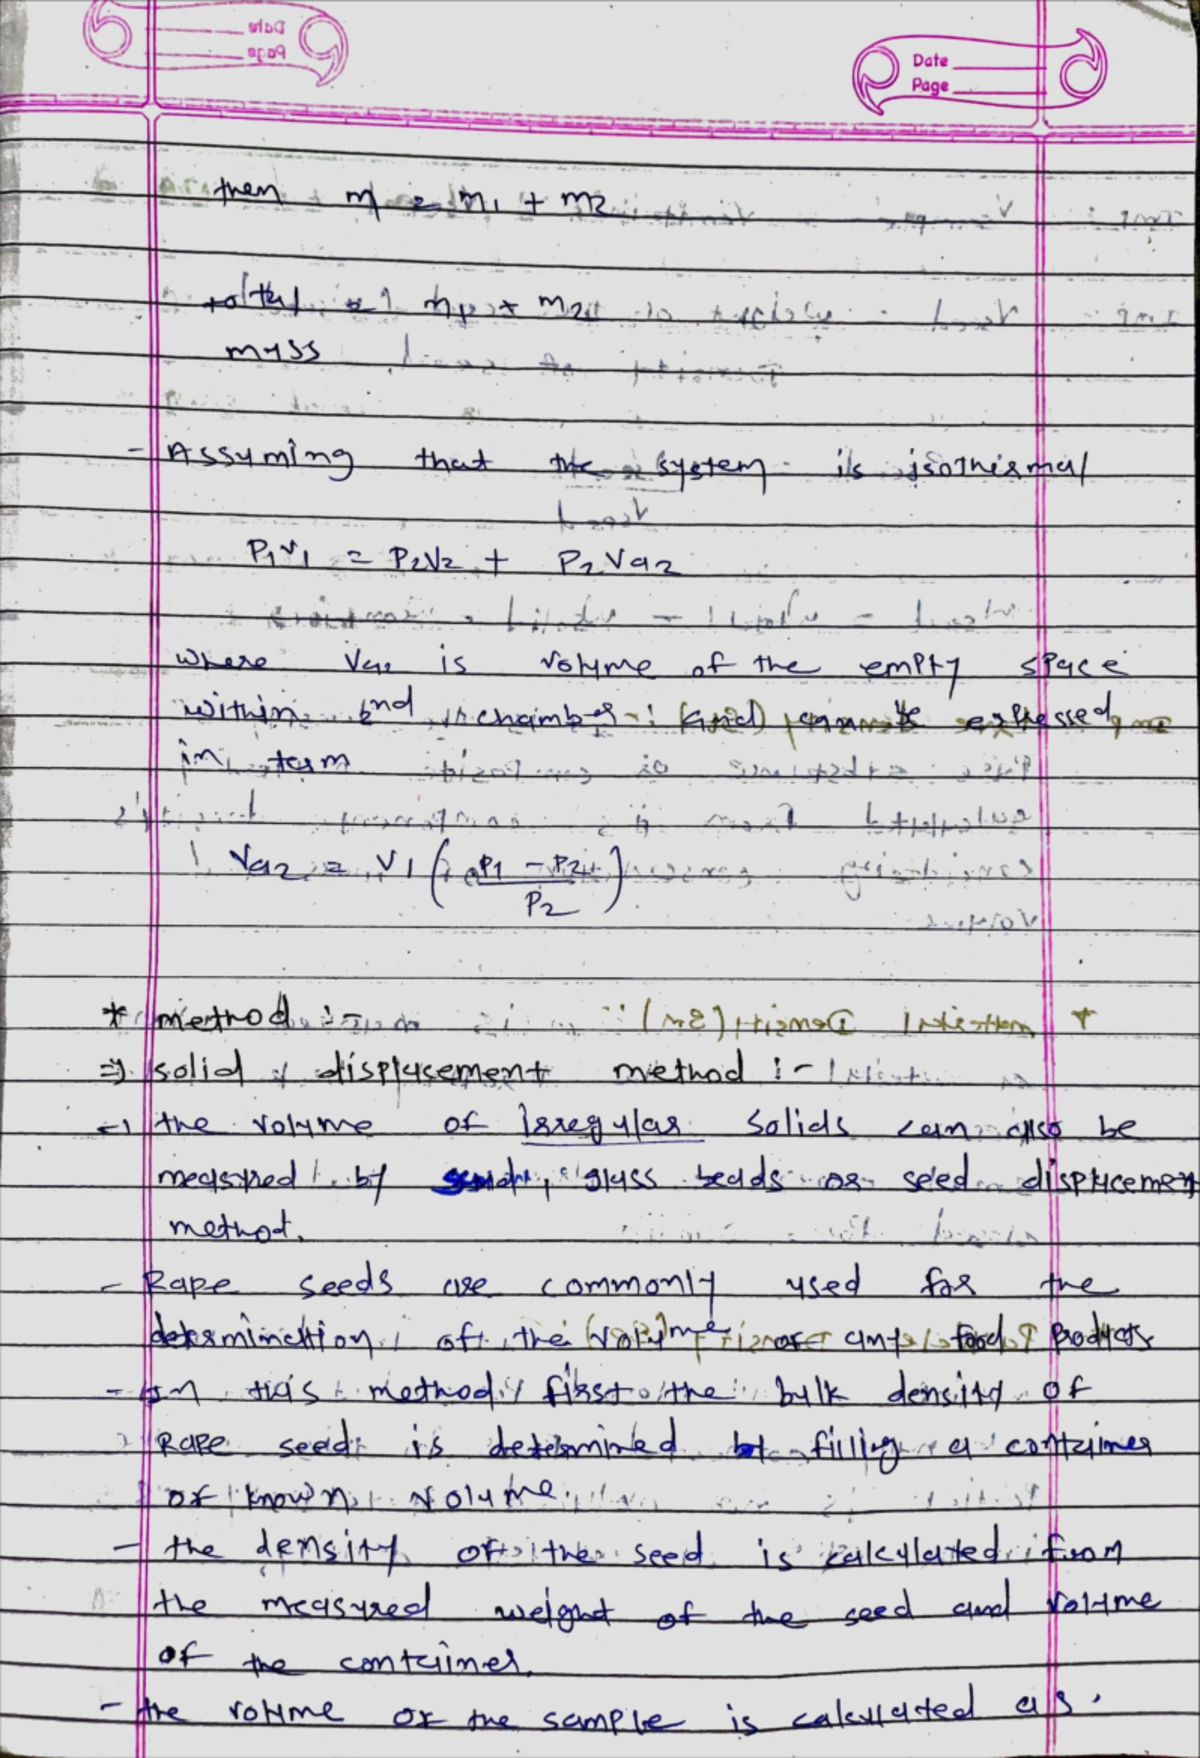 Date
Page
then m = m1 + m2
total = m1 + m2
mass
- Assuming that the system is isothermal
P1V1 = P2V2 + P2Va2
where Va2 is volume of the empty space
within 2nd chamber and can be expressed
in term
Va2 = V1 (P1 - P2 / P2)
* method :-
⇒ solid displacement method :-
-> the volume of irregular solids can also be
measured by sand, glass beads or seed displacement
method.
- Rape seeds are commonly used for the
determination of the volume of food products
- In this method, first the bulk density of
Rape seed is determined by filling a container
of known volume.
- the density of the seed is calculated from
the measured weight of the seed and volume
of the container.
- the volume of the sample is calculated as.